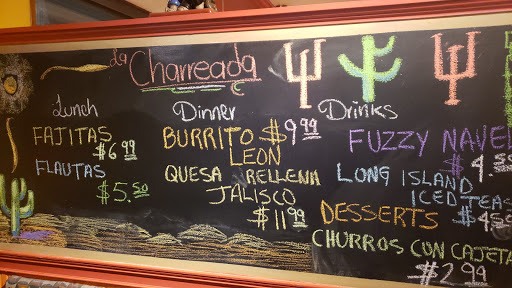 La Charreada
Lunch
FAJITAS
$6.99
FLAUTAS
$5.50
Dinner
BURRITO $9.99
LEON
QUESA RELLENA
JALISCO
$11.99
Drinks
FUZZY NAVEL
$4.
LONG ISLAND
ICED TEAS
$4.
DESSERTS
CHURROS CON CAJETA
$2.99